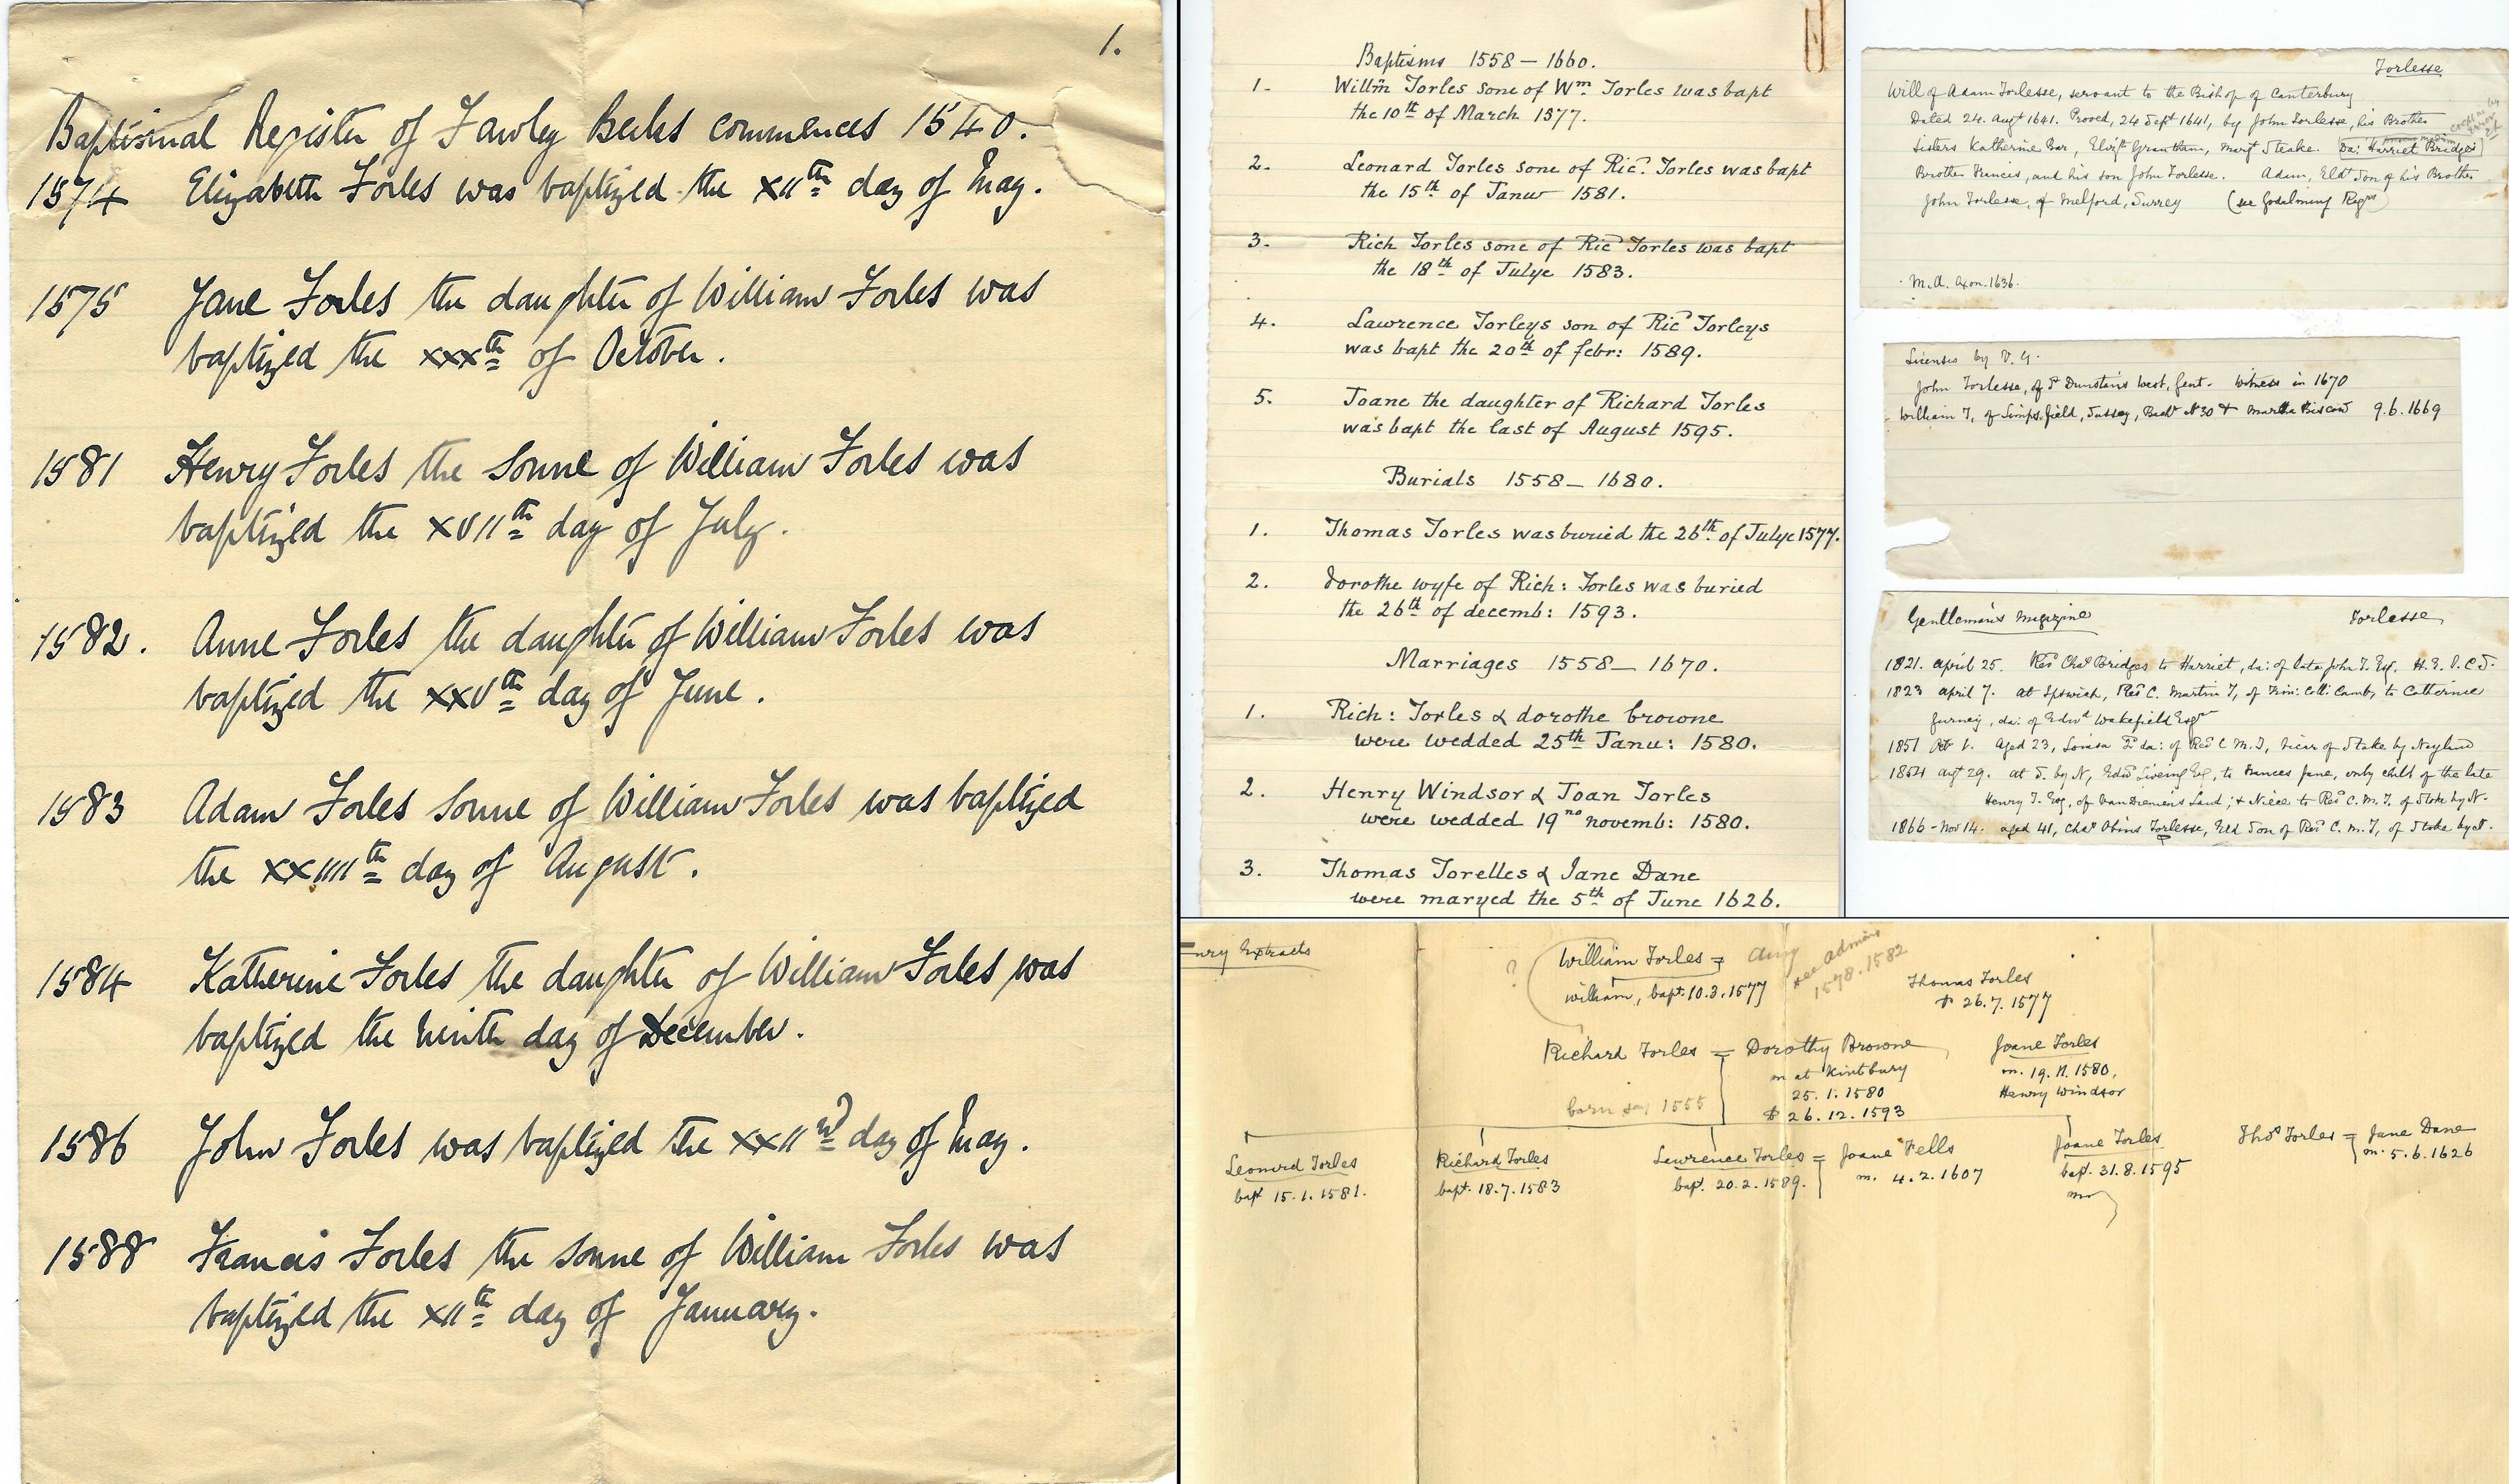 1.
Baptismal Register of Fawley Berks commences 1540.
1574 Elizabeth Torles was baptized the XIIth day of May.
1575 Jane Torles the daughter of William Torles was
baptized the xxxth of October.
1581 Henry Torles the Sonne of William Torles was
baptized the XVIIth day of July.
1582. Anne Torles the daughter of William Torles was
baptized the XXVth day of June.
1583 Adam Torles Sonne of William Torles was baptized
the XXIIIIth day of August.
1584 Katherine Torles the daughter of William Torles was
baptized the Ninth day of December.
1586 John Torles was baptized the XXIInd day of May.
1588 Francis Torles the Sonne of William Torles was
baptized the XIIth day of January.
Baptisms 1558 – 1660.
1. Willm Torles sone of Wm Torles was bapt
the 10th of March 1577.
2. Leonard Torles sone of Ric. Torles was bapt
the 15th of Janu 1581.
3. Rich Torles sone of Ric Torles was bapt
the 18th of Julye 1583.
4. Lawrence Torleys son of Ric Torleys
was bapt the 20th of febr: 1589.
5. Joane the daughter of Richard Torles
was bapt the last of August 1595.
Burials 1558 – 1680.
1. Thomas Torles was buried the 26th of Julye 1577.
2. dorothe wyfe of Rich: Torles was buried
the 26th of decemb: 1593.
Marriages 1558 – 1670.
1. Rich: Torles & dorothe browne
were wedded 25th Janu: 1580.
2. Henry Windsor & Joan Torles
were wedded 19no novemb: 1580.
3. Thomas Torelles & Jane Dane
were maryed the 5th of June 1626.
Torlesse
Will of Adam Torlesse, servant to the Bishop of Canterbury
Dated 24. Augt 1641. Proved, 24 Sept 1641, by John Torlesse, his Brother
Sisters Katherine Bar, Elizth Grantham, Margt Steake. Da: Harriet Bridges
Brother Francis, and his son John Torlesse. Adam, Eldt Son of his Brother
John Torlesse, of Melford, Surrey (see Godalming Regrs)
M.A. Oxon. 1636.
Licenses by V. G.
John Torlesse, of St Dunstans West, Gent. Witness in 1670
William T. of Limpsfield, Sussex, Bachr 30 & Martha 9.6.1669
Gentleman's Magazine Torlesse
1821. April 25. Revd Chas Bridges to Harriet, da: of late John T. Esq. H.E.I.C.S.
1823 April 7. at Ipswich, Revd C. Martin T, of Trin: Coll: Camb, to Catherine
Gurney, da: of Edwd Wakefield Esqr
1851 Oct 1. Aged 23, Louisa da: of Revd C M. T, Vicar of Stoke by Nayland
1854 Augt 29. at S. by N, Edwd Liveing Esq, to Frances Jane, only child of the late
Henry T. Esq, of Van Diemens Land; & Niece to Revd C. M. T. of Stoke by N.
1866 – Nov 14. aged 41, Chas Obins Torlesse, Eld Son of Revd C. M. T, of Stoke by N.
Extracts
? William Torles = Amy
see admins
1578.1582
William, bapt. 10.3.1577
Thomas Torles
26.7.1577
Richard Torles = Dorothy Browne
m at Kintbury
25.1.1580
26.12.1593
born say 1555
Joane Torles
m. 19.11.1580,
Henry Windsor
Leonard Torles
bapt 15.1.1581.
Richard Torles
bapt. 18.7.1583
Lawrence Torles = Joane Fells
bapt. 20.2.1589. m. 4.2.1607
Joane Torles
bapt. 31.8.1595
Thos Torles = Jane Dane
m. 5.6.1626